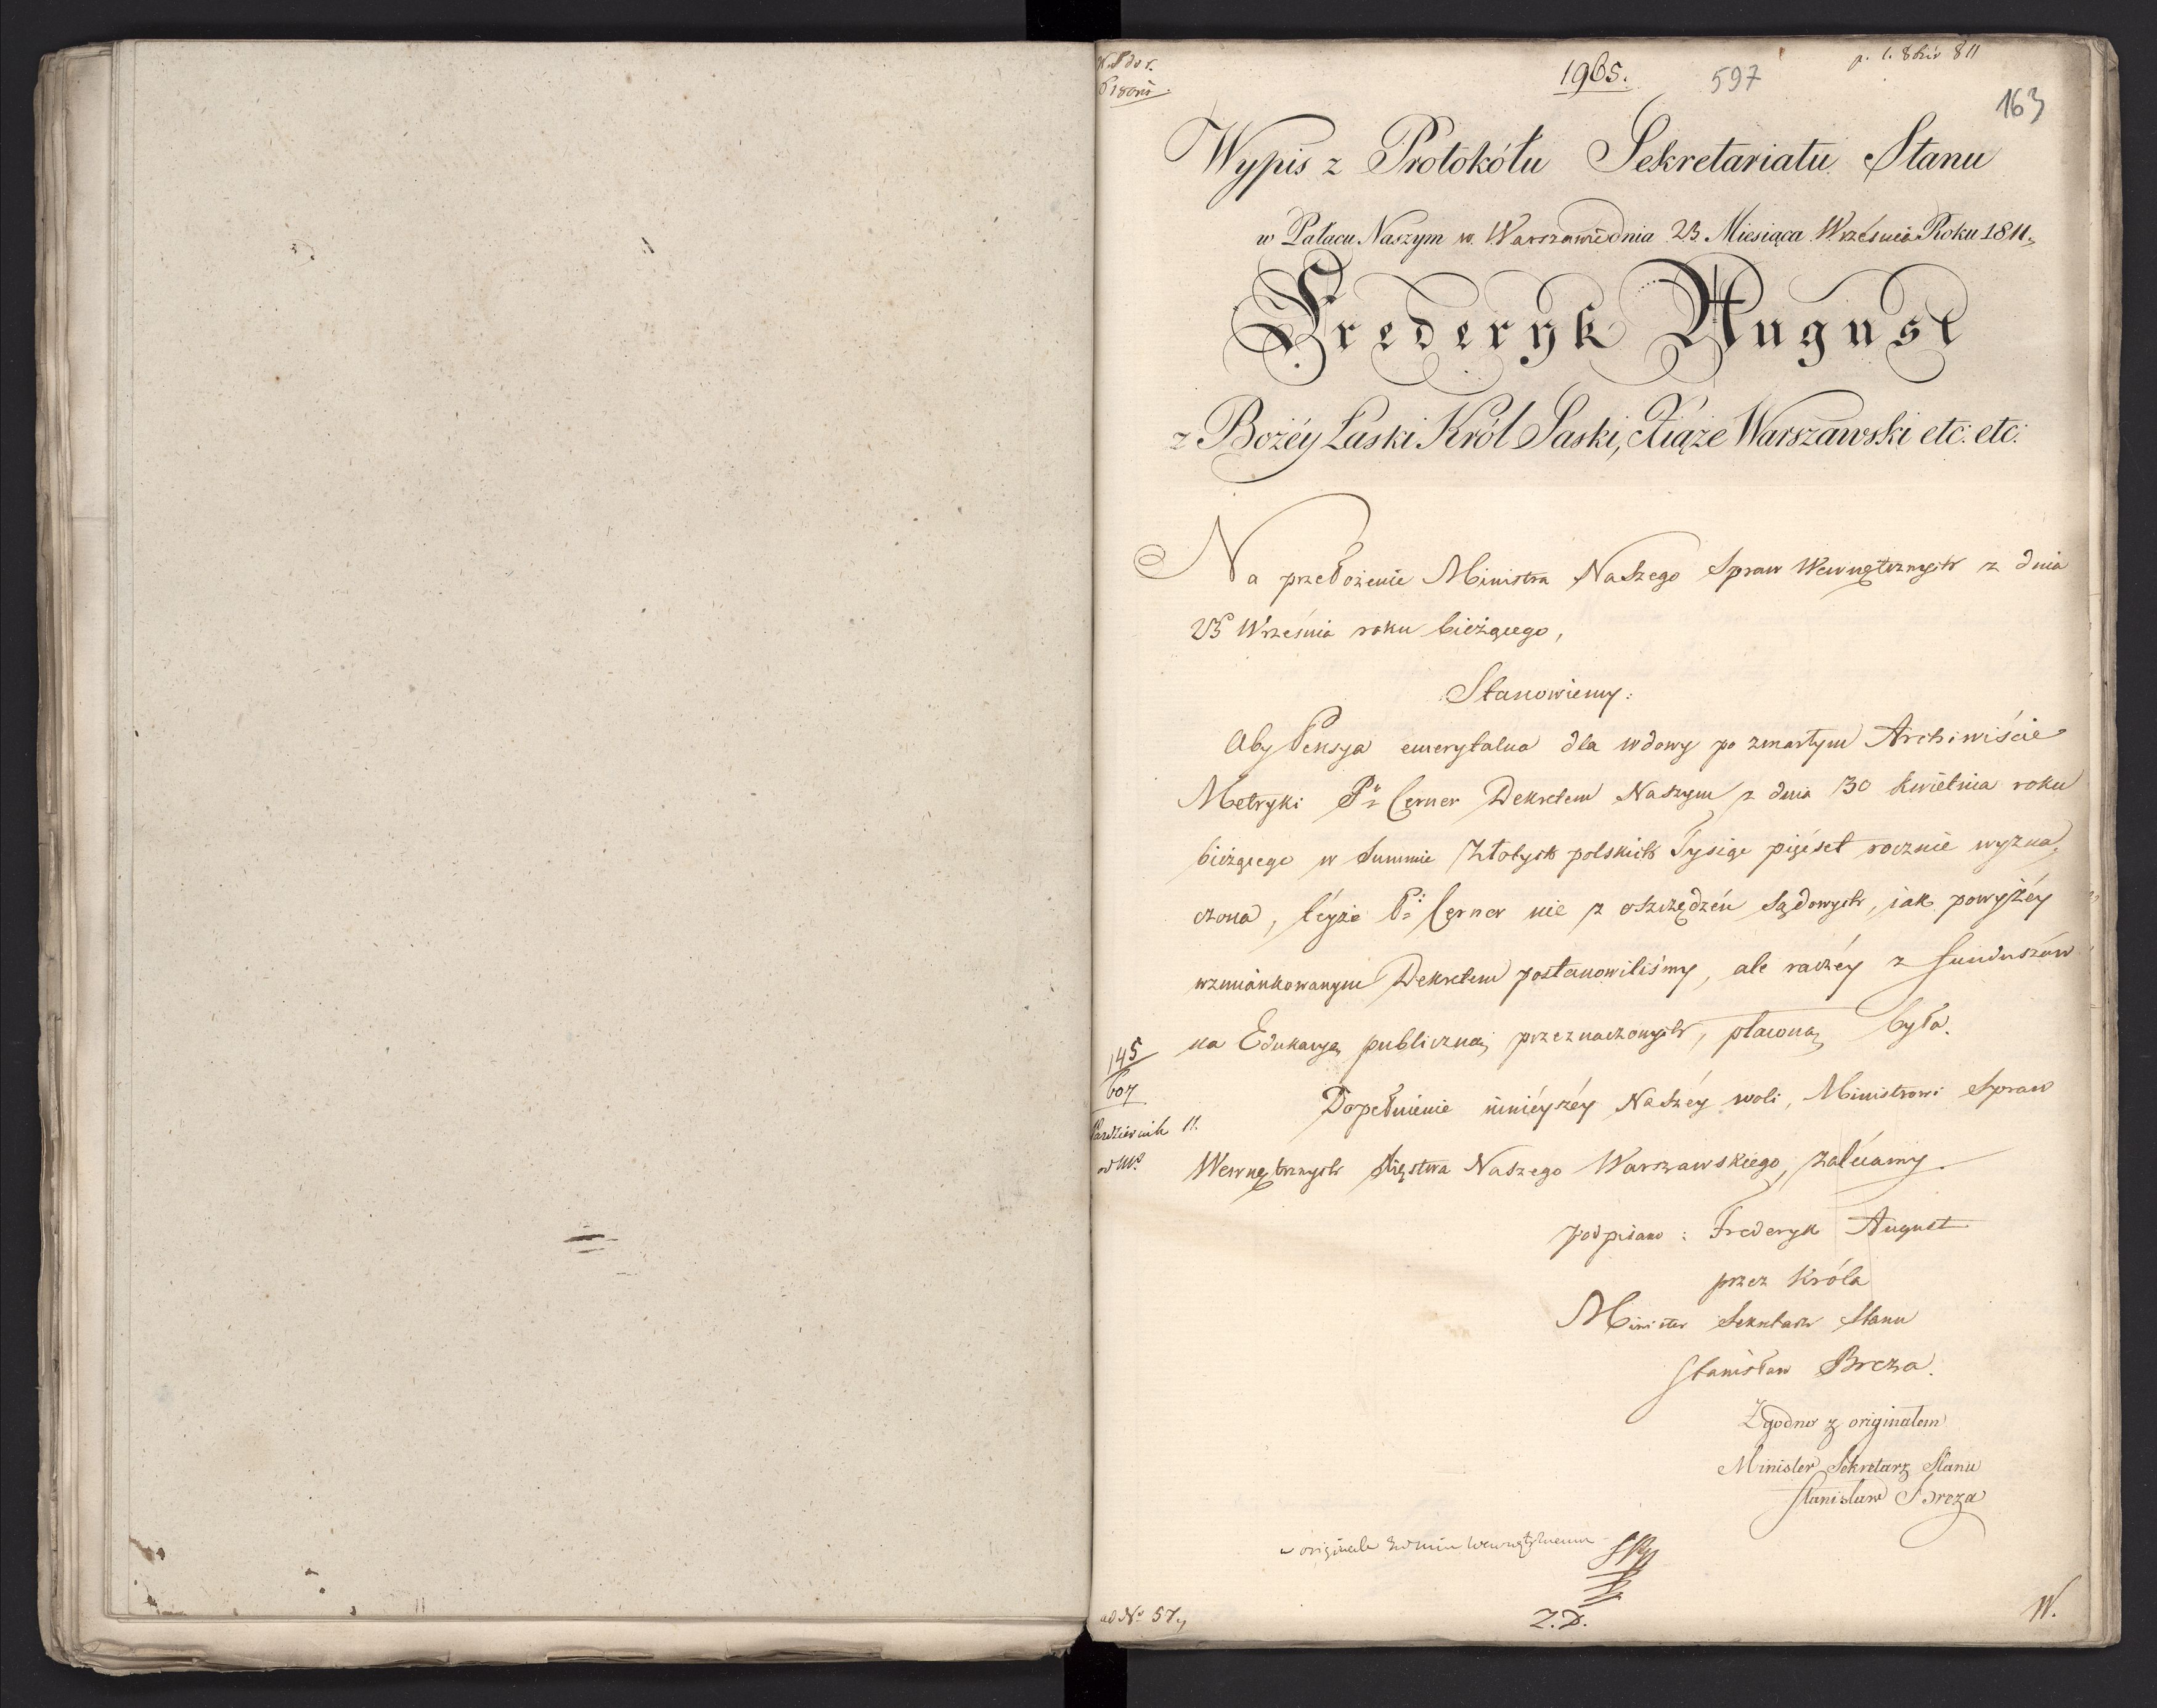 1965.
597
163
Wypis z Protokółu Sekretariatu Stanu
w Pałacu Naszym w Warszawie dnia 23 Miesiąca Września Roku 1811.
Frederyk August
z Bożéy Łaski Król Saski, Xiąże Warszawski etc: etc:
Na przełożenie Ministra Naszego Spraw Wewnętrznych z dnia
23 Września roku bieżącego,
Stanowiemy:
Aby Pensya emerytalna dla wdowy po zmarłym Archiwiście
Metryki Pu Cerner Dekretem Naszym z dnia 30 Kwietnia roku
bieżącego w Summie Złotych polskich Tysiąc pięćset rocznie wyzna,
czona, téyże Pi Cerner nie z oszczędzeń Sądowych, jak powyżéy
wzmiankowanym Dekretem postanowiliśmy, ale raczéy z funduszów
na Edukacyą publiczną przeznaczonych, płaconą była.
Dopełnienie ninieyszéy Naszéy woli, Ministrowi Spraw
Wewnętrznych Xięstwa Naszego Warszawskiego, zalecamy.
145
607
Pazdziernik 11.
podpisano: Frederyk August
przez Króla
Minister Sekretarz Stanu
Stanisław Breza.
Zgodno z originałem
Minister Sekretarz Stanu
Stanisław Breza
ad No 57,
Z.D.
W.